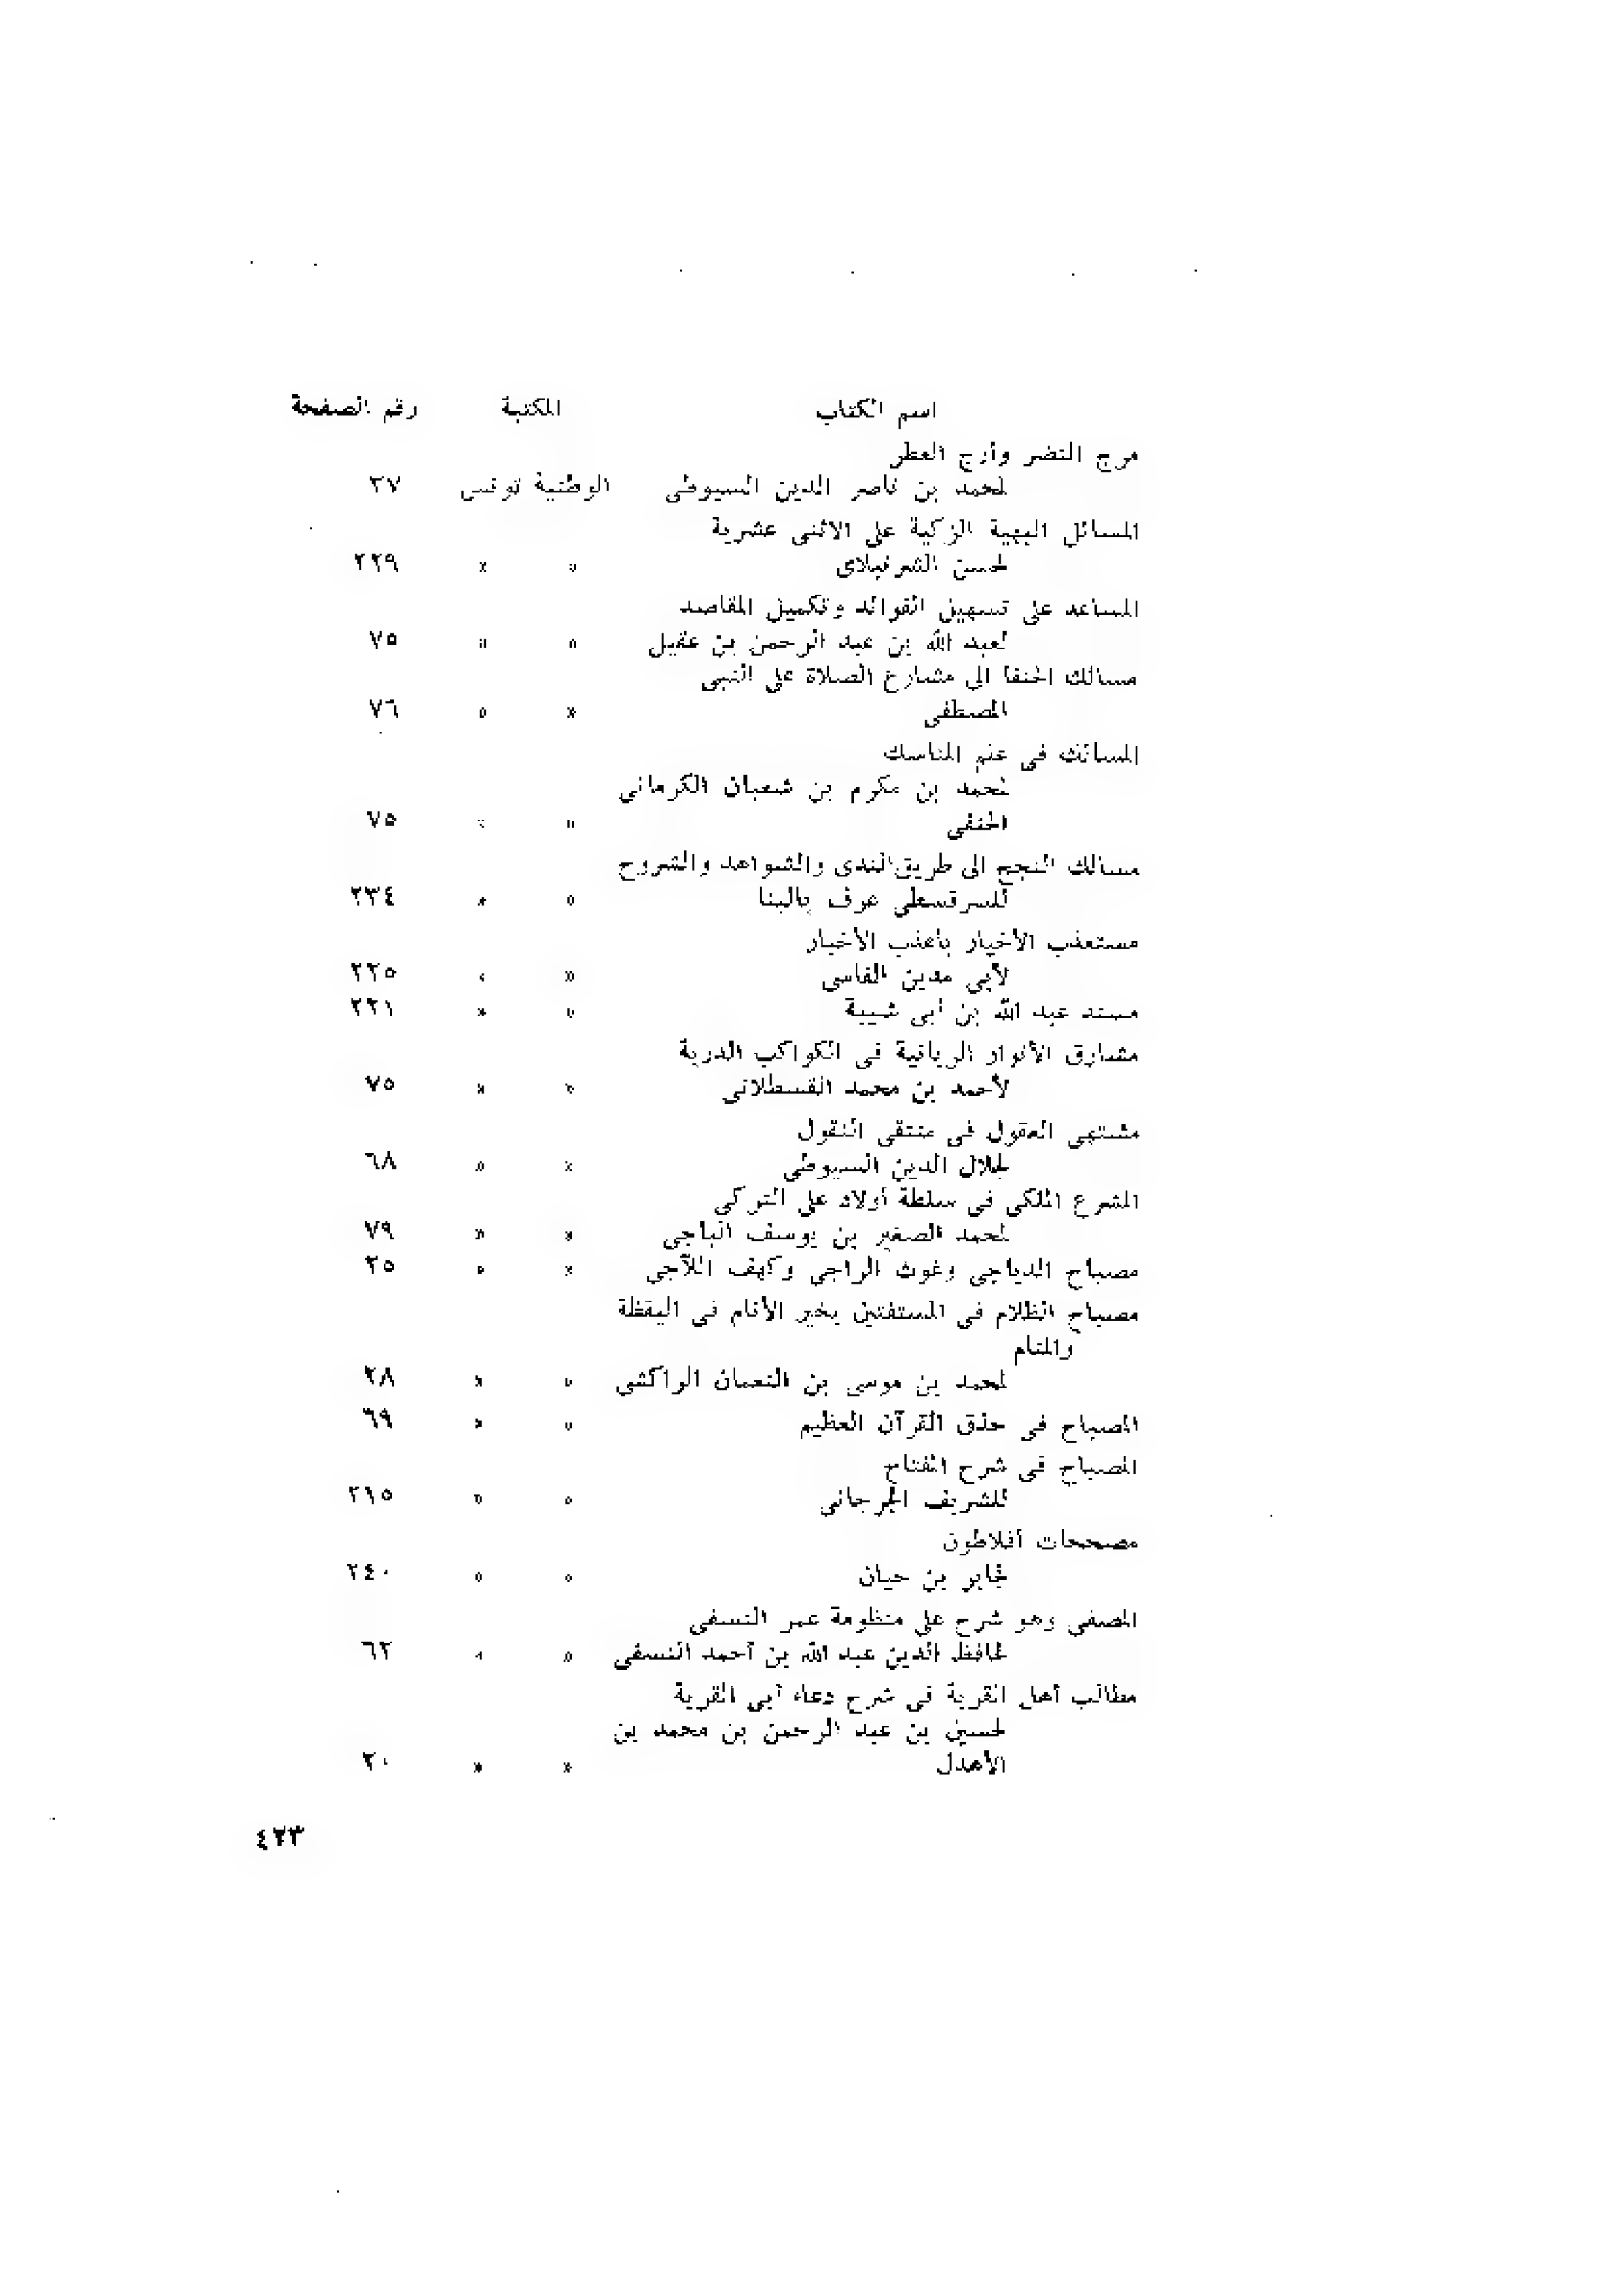 اسم الكتاب المكتبة رقم الصفحة
مرج النضر وأرج العطر
لمحمد بن ناصر الدين السيوطى الوطنية تونس ٢٧
المسائل البهية الزكية على الاثنى عشرية
لحسن الشرنبلاى » » ٢٢٩
المساعد على تسهيل الفوائد وتكميل المقاصد
لعبد الله بن عبد الرحمن بن عقيل » » ٧٥
مسالك الحنفا الى مشارع الصلاة على النبى
المصطفى » » ٧٦
المسالك فى علم المناسك
لمحمد بن مكرم بن شعبان الكرمانى
الحنفى » » ٧٥
مسالك النجح الى طريق الندى والشواهد والشروح
للسرقسطى عرف بالبنا » » ٢٣٤
مستعذب الأخيار بأعذب الأخبار
لأبى مدين الفاسى » » ٢٢٥
مسند عبد الله بن أبى شيبة » » ٢٢١
مشارق الأنوار الربانية فى الكواكب الدرية
لأحمد بن محمد القسطلانى » » ٧٥
مشتهى العقول فى منتقى النقول
لجلال الدين السيوطى » » ٦٨
المشرع الملكى فى سلطة أولاد على التركى
لمحمد الصغير بن يوسف الباجى » » ٧٩
مصباح الدياجى وغوث الراجى وكهف اللآجى » » ٢٥
مصباح الظلام فى المستفتين بخير الأنام فى اليقظة
والمنام
لمحمد بن موسى بن النعمان الراكشى » » ٢٨
المصباح فى حذق القرآن العظيم » » ٦٩
المصباح فى شرح المفتاح
للشريف الجرجانى » » ٢١٥
مصححات أفلاطون
لجابر بن حيان » » ٢٤٠
المصفى وهو شرح على منظومة عمر النسفى
لحافظ الدين عبد الله بن أحمد النسفى » » ٦٢
مطالب أهل القربة فى شرح دعاء أبى القربة
لحسين بن عبد الرحمن بن محمد بن
الأهدل » » ٢٠
٤٢٣